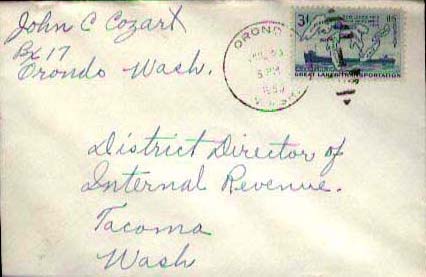 John C Cozart
Bx 17
Orondo Wash.
ORONDO
5 PM
3¢ US
GREAT LAKES TRANSPORTATION
District Director of
Internal Revenue.
Tacoma
Wash